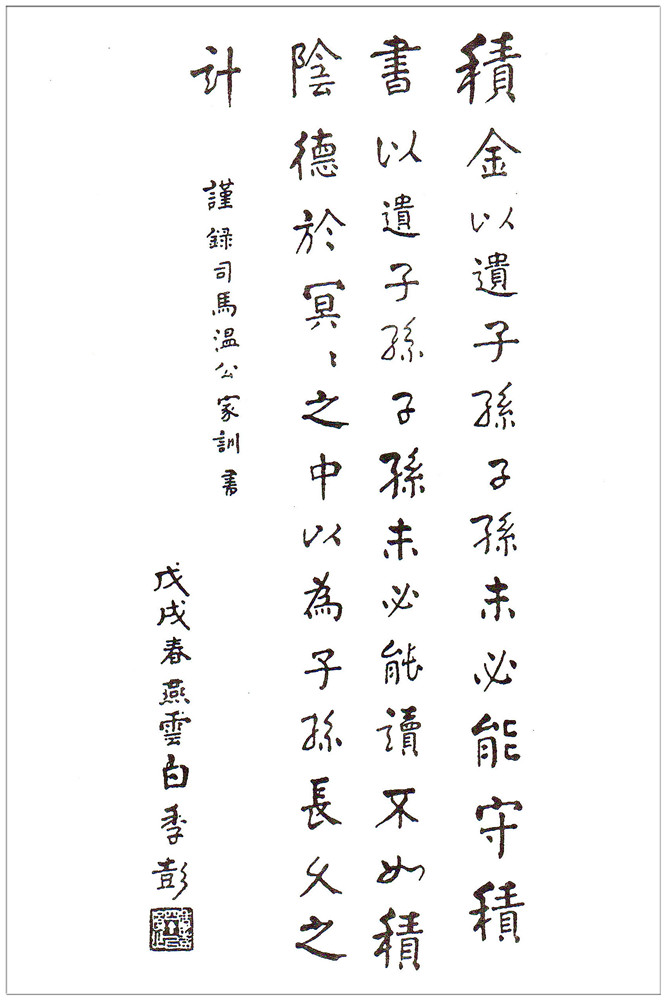 積金以遺子孫子孫未必能守積
書以遺子孫子孫未必能讀不如積
陰德於冥〻之中以為子孫長久之
計
謹錄司馬溫公家訓書
戊戌春燕雲白季彭